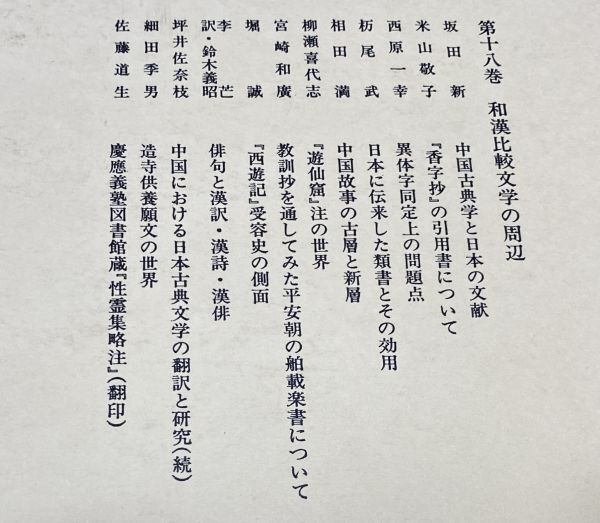 第十八巻 和漢比較文学の周辺
坂田 新 中国古典学と日本の文献
米山敬子 『香字抄』の引用書について
西原一幸 異体字同定上の問題点
杤尾 武 日本に伝来した類書とその効用
相田 満 中国故事の古層と新層
柳瀬喜代志 『遊仙窟』注の世界
宮崎和廣 教訓抄を通してみた平安朝の舶載楽書について
堀 誠 『西遊記』受容史の側面
李 芒
訳・鈴木義昭 俳句と漢訳・漢詩・漢俳
坪井佐奈枝 中国における日本古典文学の翻訳と研究(続)
細田季男 造寺供養願文の世界
佐藤道生 慶應義塾図書館蔵『性霊集略注』(翻印)